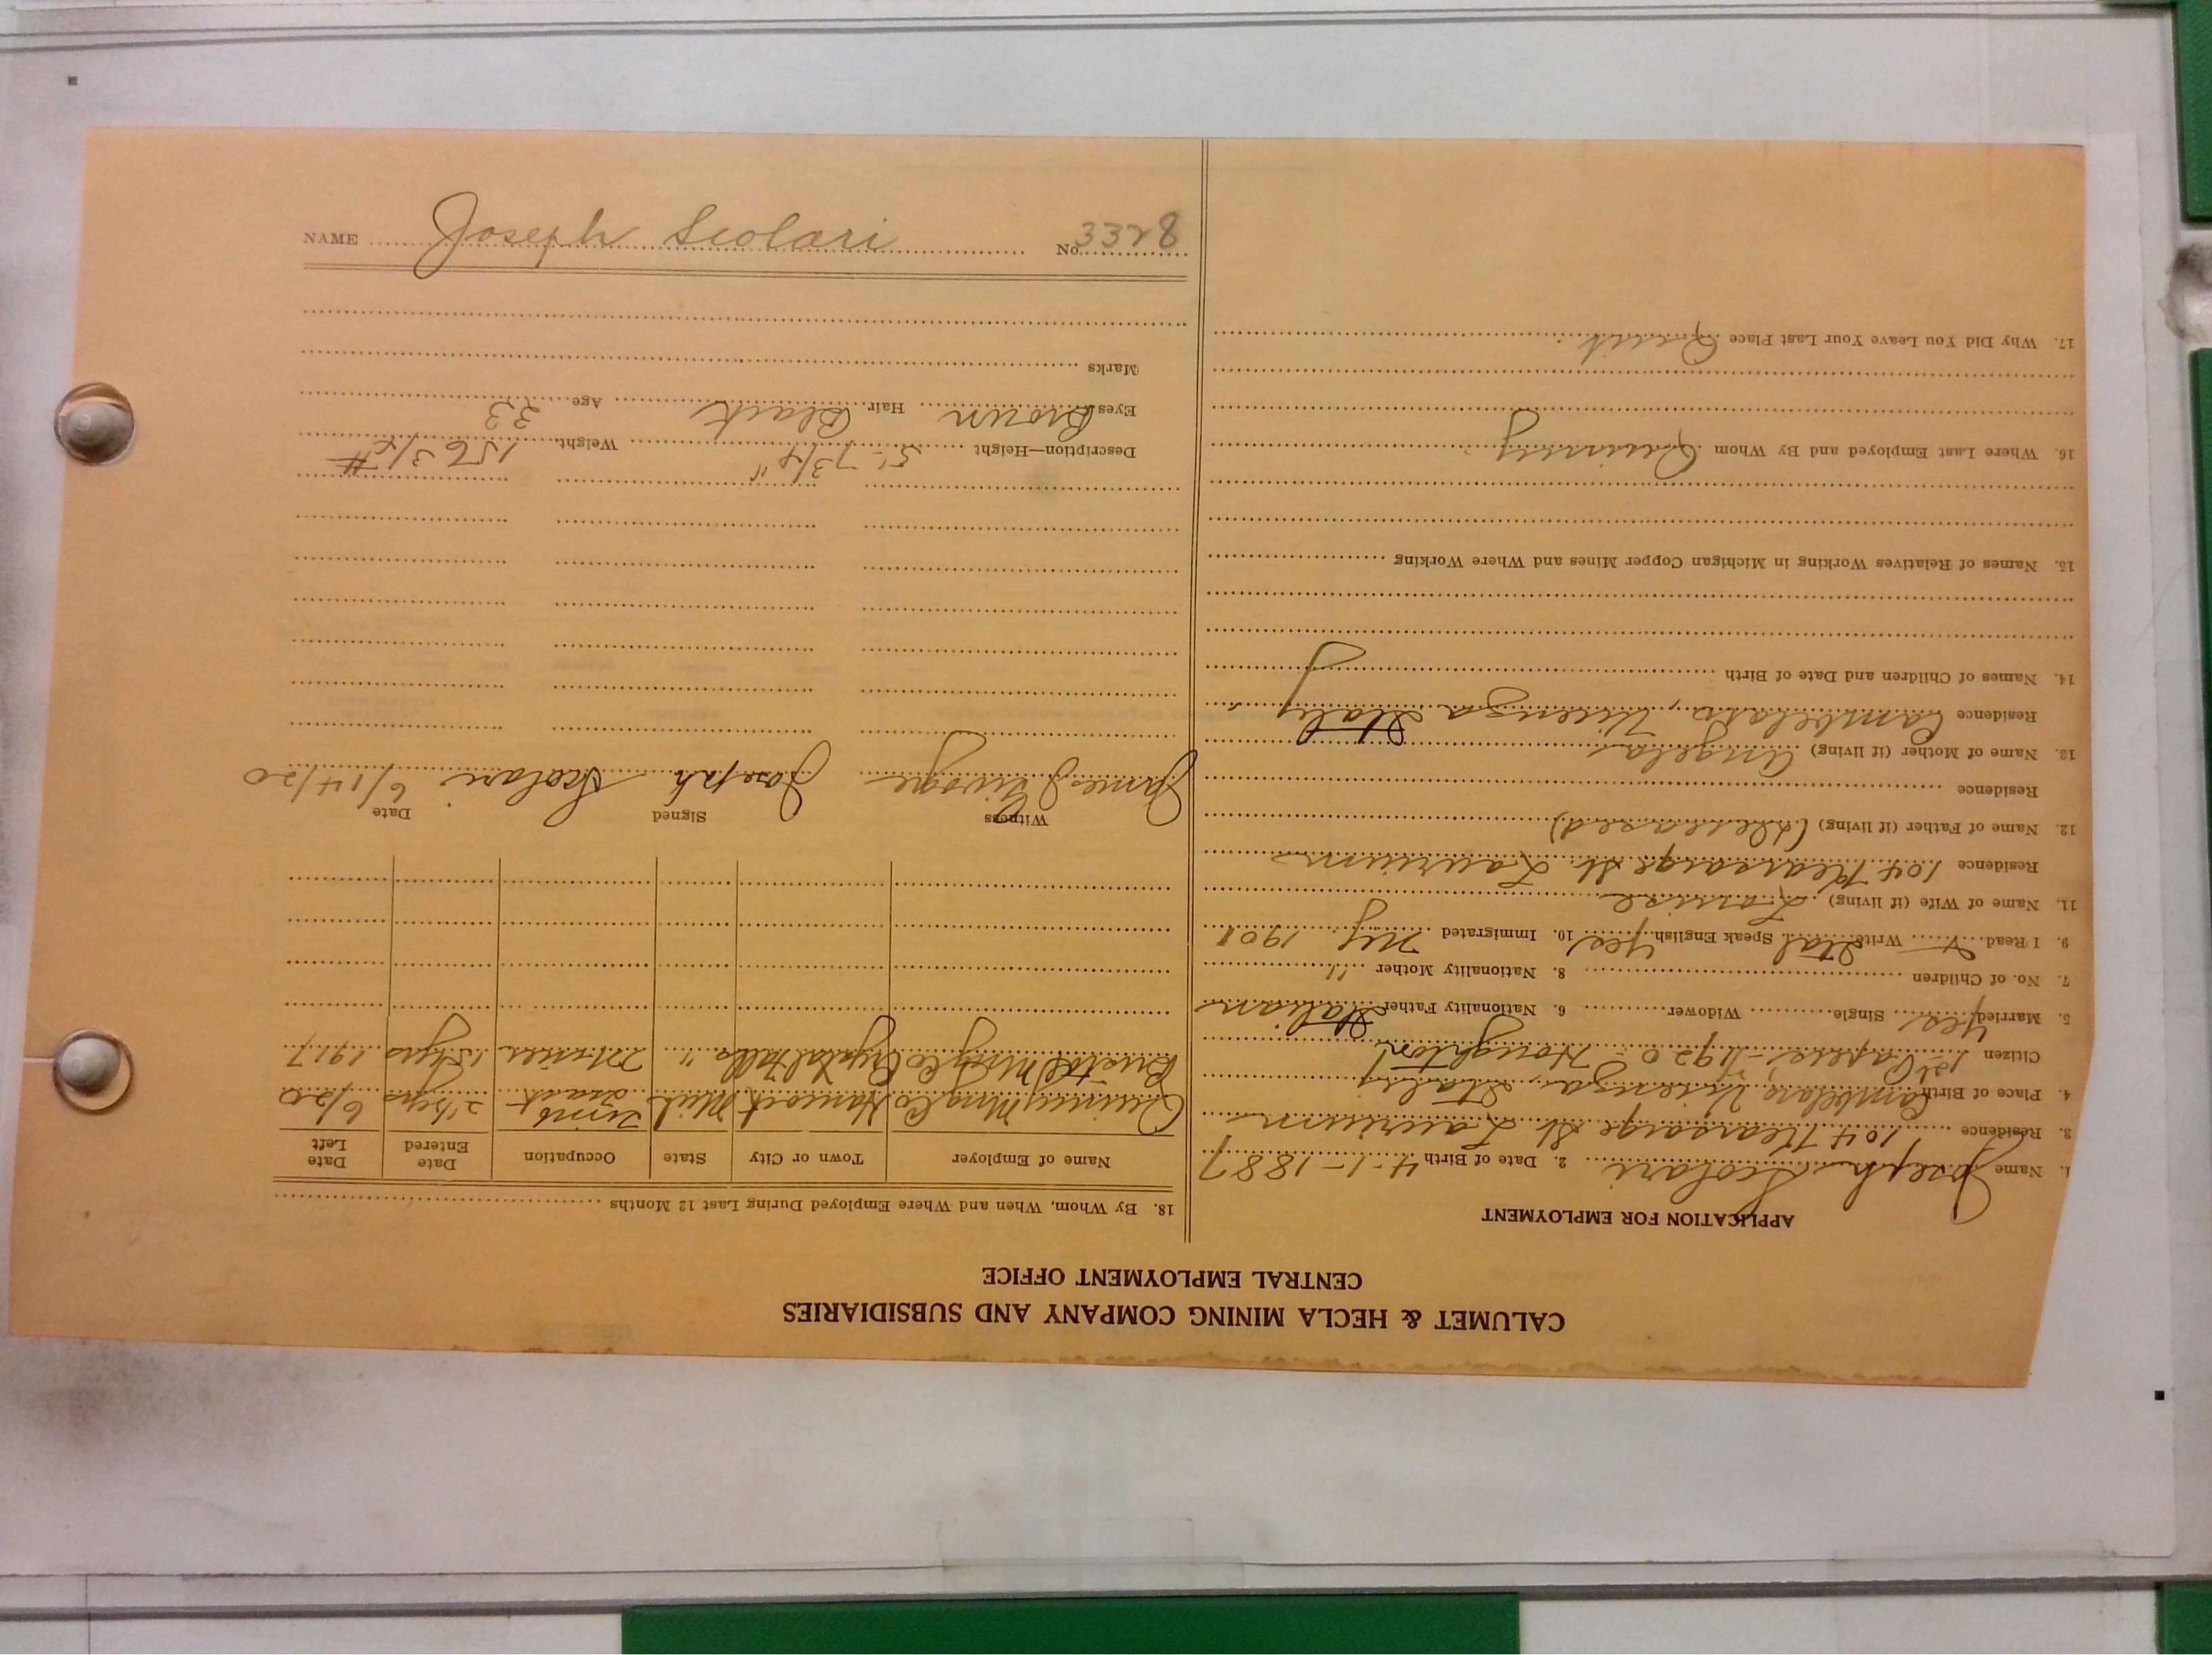 CALUMET & HECLA MINING COMPANY AND SUBSIDIARIES
CENTRAL EMPLOYMENT OFFICE
APPLICATION FOR EMPLOYMENT
1. Name Joseph Scolari 2. Date of Birth 4-1-1887
3. Residence 104 Kearsarge St. Laurium
4. Place of Birth Cambelaro Vicenza, Italy
Citizen 1st Papers - 1920 - Houghton
5. Married Yes Single Widower 6. Nationality Father Italian
7. No. of Children 8. Nationality Mother "
9. I Read Write Ital Speak English Yes 10. Immigrated NY 1901
11. Name of Wife (if living) Louise
Residence 104 Kearsarge St. Laurium
12. Name of Father (if living) (deceased)
Residence
13. Name of Mother (if living) Angela
Residence Cambelaro, Vicenza Italy
14. Names of Children and Date of Birth
15. Names of Relatives Working in Michigan Copper Mines and Where Working
16. Where Last Employed and By Whom Quincy
17. Why Did You Leave Your Last Place Quit
18. By Whom, When and Where Employed During Last 12 Months
Name of Employer Town or City State Occupation Date Entered Date Left
Quincy Mng Co Hancock Mich 6/20
Bristol Mng Co Crystal Falls " Miner 15 yrs 1917
Witness Signed Date
James Joseph Scolari 6/14/20
Description—Height 5'-7 3/4" Weight 156 3/4 #
Eyes Brown Hair Black Age 33
Marks
NAME Joseph Scolari No. 3328